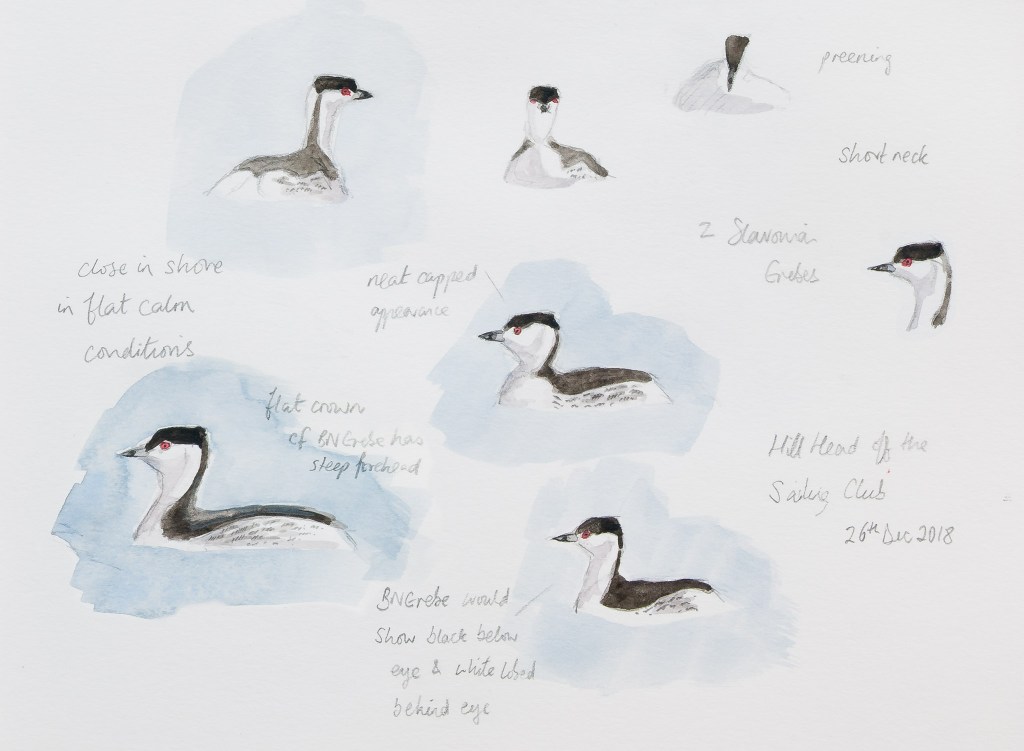 preening
Short neck
2 Slavonian
Grebes
close in shore
in flat calm
conditions
neat capped
appearance
flat crown
cf BNGrebe has
steep forehead
Hill Head off the
Sailing Club
26th Dec 2018
BNGrebe would
show black below
eye & white lobed
behind eye